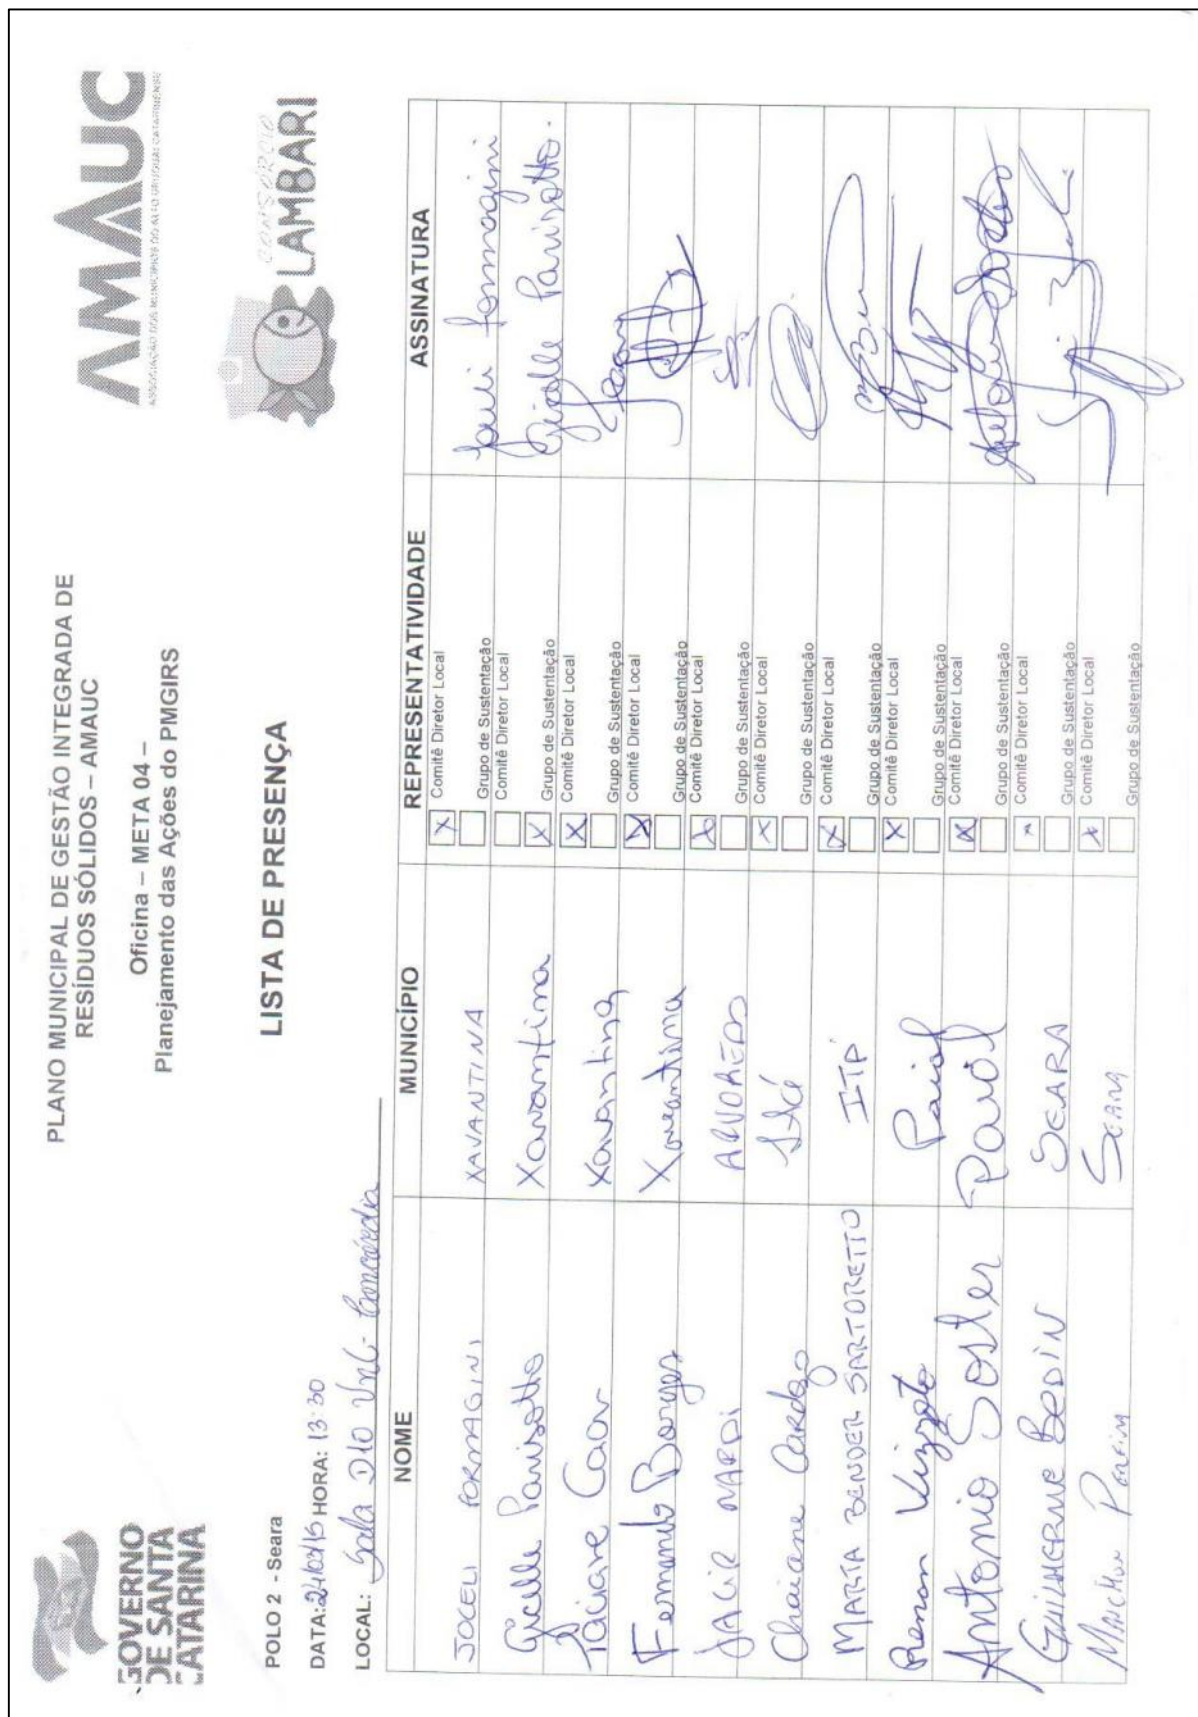 GOVERNO
DE SANTA
CATARINA
PLANO MUNICIPAL DE GESTÃO INTEGRADA DE
RESÍDUOS SÓLIDOS – AMAUC
Oficina – META 04 –
Planejamento das Ações do PMGIRS
AMAUC
ASSOCIAÇÃO DOS MUNICÍPIOS DO ALTO URUGUAI CATARINENSE
CONSÓRCIO
LAMBARI
LISTA DE PRESENÇA
POLO 2 - Seara
DATA: HORA: 13:30
LOCAL: Sala D10 UnC - Concórdia
NOME MUNICÍPIO REPRESENTATIVIDADE ASSINATURA
JOCELI FORMAGINI XAVANTINA X Comitê Diretor Local Joceli Formagini
Grupo de Sustentação
Giselle Parisotto Xavantina Comitê Diretor Local Giselle Parisotto.
X Grupo de Sustentação
Xavantina X Comitê Diretor Local
Grupo de Sustentação
Fernando Borges Xavantina X Comitê Diretor Local
Grupo de Sustentação
JACIR NARDI ARVOREDO X Comitê Diretor Local
Grupo de Sustentação
Chaiane Cardozo X Comitê Diretor Local
Grupo de Sustentação
MARTA BENDER SARTORETTO ITÁ X Comitê Diretor Local
Grupo de Sustentação
Renan Vizzoto Paial X Comitê Diretor Local
Grupo de Sustentação
Antonio Soster Paial X Comitê Diretor Local
Grupo de Sustentação
GUILHERME BEDIN SEARA X Comitê Diretor Local
Grupo de Sustentação
SEARA X Comitê Diretor Local
Grupo de Sustentação